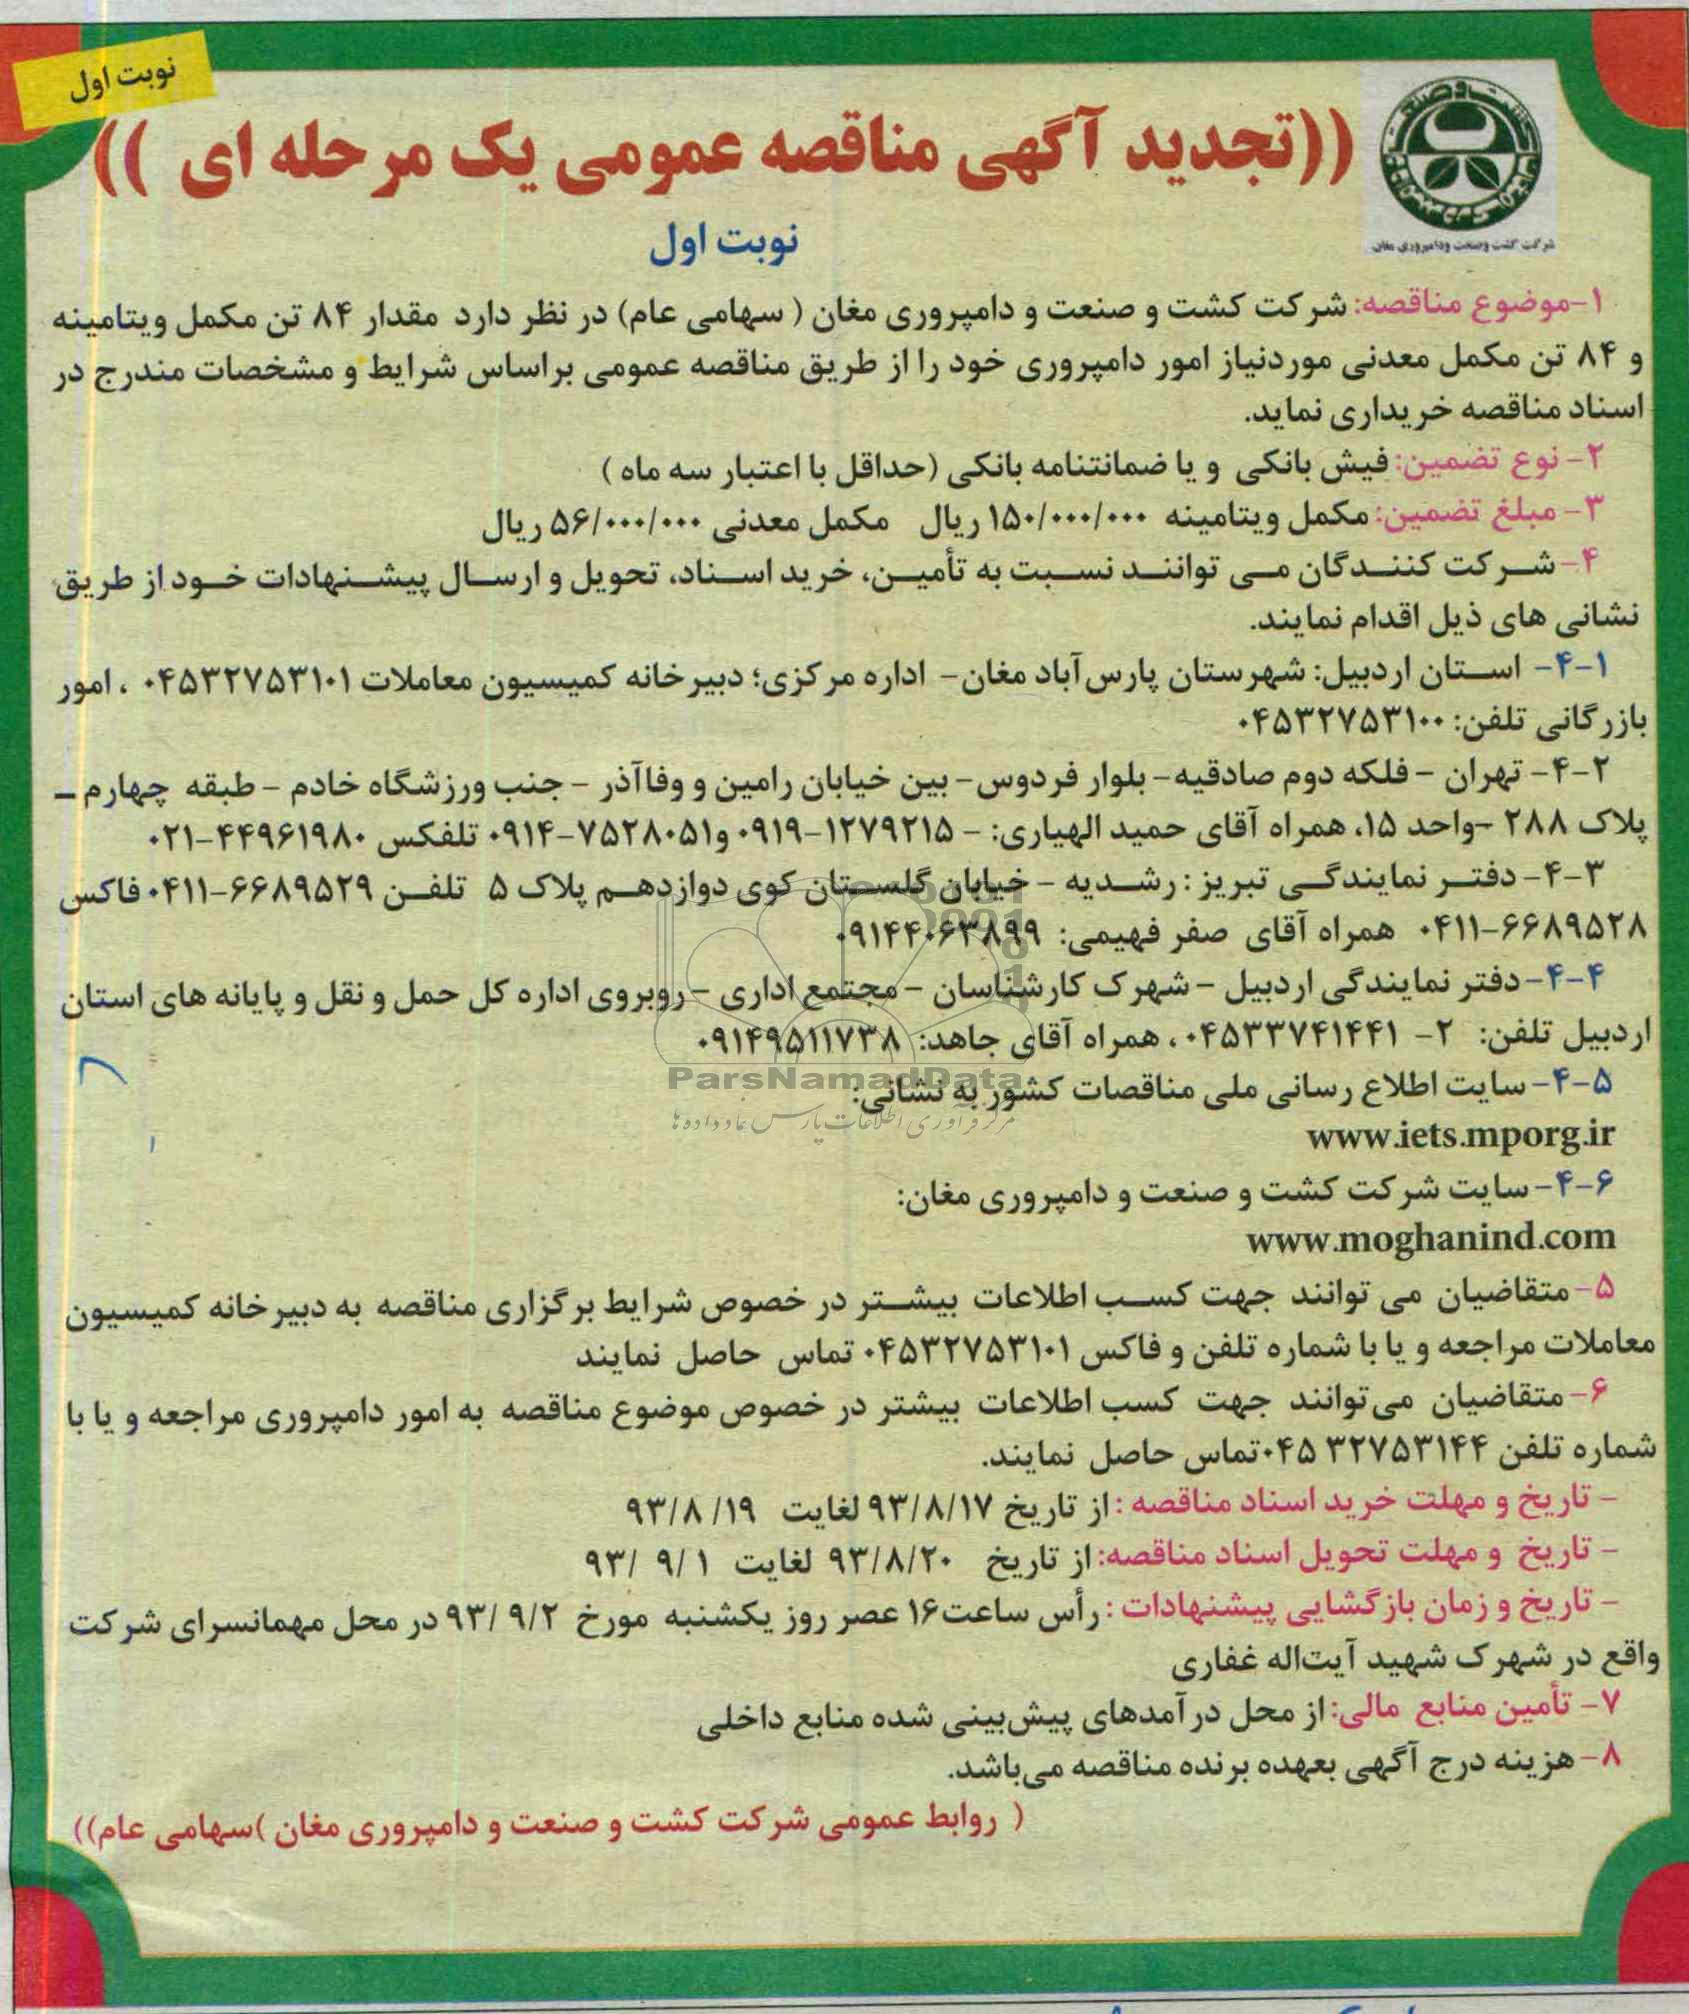 نوبت اول
((تجدید آگهی مناقصه عمومی یک مرحله ای ))
شرکت کشت وصنعت ودامپروری مغان
نوبت اول
۱-موضوع مناقصه: شرکت کشت و صنعت و دامپروری مغان ( سهامی عام) در نظر دارد مقدار ۸۴ تن مکمل ویتامینه
و ۸۴ تن مکمل معدنی موردنیاز امور دامپروری خود را از طریق مناقصه عمومی براساس شرایط و مشخصات مندرج در
اسناد مناقصه خریداری نماید.
۲- نوع تضمین: فیش بانکی و یا ضمانتنامه بانکی (حداقل با اعتبار سه ماه )
۳- مبلغ تضمین: مکمل ویتامینه ۱۵۰/۰۰۰/۰۰۰ ریال مکمل معدنی ۵۶/۰۰۰/۰۰۰ ریال
۴-شرکت کنندگان می توانند نسبت به تأمین، خرید اسناد، تحویل و ارسال پیشنهادات خود از طریق
نشانی های ذیل اقدام نمایند.
۴-۱- استان اردبیل: شهرستان پارس‌آباد مغان- اداره مرکزی؛ دبیرخانه کمیسیون معاملات ۰۴۵۳۲۷۵۳۱۰۱ ، امور
بازرگانی تلفن: ۰۴۵۳۲۷۵۳۱۰۰
۴-۲- تهران -فلکه دوم صادقیه- بلوار فردوس- بین خیابان رامین و وفاآذر - جنب ورزشگاه خادم - طبقه چهارم -
پلاک ۲۸۸ -واحد ۱۵، همراه آقای حمید الهیاری: - ۰۹۱۹-۱۲۷۹۲۱۵ و۰۹۱۴-۷۵۲۸۰۵۱ تلفکس ۰۲۱-۴۴۹۶۱۹۸۰
۴-۳- دفتر نمایندگی تبریز : رشدیه - خیابان گلستان کوی دوازدهم پلاک ۵ تلفن ۰۴۱۱-۶۶۸۹۵۲۹ فاکس
۰۴۱۱-۶۶۸۹۵۲۸ همراه آقای صفر فهیمی: ۰۹۱۴۴۰۶۳۸۹۹
۴-۴-دفتر نمایندگی اردبیل - شهرک کارشناسان - مجتمع اداری - روبروی اداره کل حمل و نقل و پایانه های استان
اردبیل تلفن: ۲- ۰۴۵۳۳۷۴۱۴۴۱ ، همراه آقای جاهد: ۰۹۱۴۹۵۱۱۷۳۸
ParsNamadData
۴-۵- سایت اطلاع رسانی ملی مناقصات کشور به نشانی:
مرکز فرآوری اطلاعات پارس نماد داده ها
www.iets.mporg.ir
۴-۶- سایت شرکت کشت و صنعت و دامپروری مغان:
www.moghanind.com
۵-متقاضیان می توانند جهت کسب اطلاعات بیشتر در خصوص شرایط برگزاری مناقصه به دبیرخانه کمیسیون
معاملات مراجعه و یا با شماره تلفن و فاکس ۰۴۵۳۲۷۵۳۱۰۱ تماس حاصل نمایند
۶-متقاضیان می‌توانند جهت کسب اطلاعات بیشتر در خصوص موضوع مناقصه به امور دامپروری مراجعه و یا با
شماره تلفن ۰۴۵ ۳۲۷۵۳۱۴۴تماس حاصل نمایند.
- تاریخ و مهلت خرید اسناد مناقصه :از تاریخ ۹۳/۸/۱۷ لغایت ۹۳/۸/۱۹
- تاریخ و مهلت تحویل اسناد مناقصه: از تاریخ ۹۳/۸/۲۰ لغایت ۹۳/ ۹/۱
- تاریخ و زمان بازگشایی پیشنهادات : رأس ساعت۱۶ عصر روز یکشنبه مورخ ۹۳/ ۹/۲ در محل مهمانسرای شرکت
واقع در شهرک شهید آیت‌اله غفاری
۷- تأمین منابع مالی: از محل درآمدهای پیش‌بینی شده منابع داخلی
۸-هزینه درج آگهی بعهده برنده مناقصه می‌باشد.
( روابط عمومی شرکت کشت و صنعت و دامپروری مغان )سهامی عام))